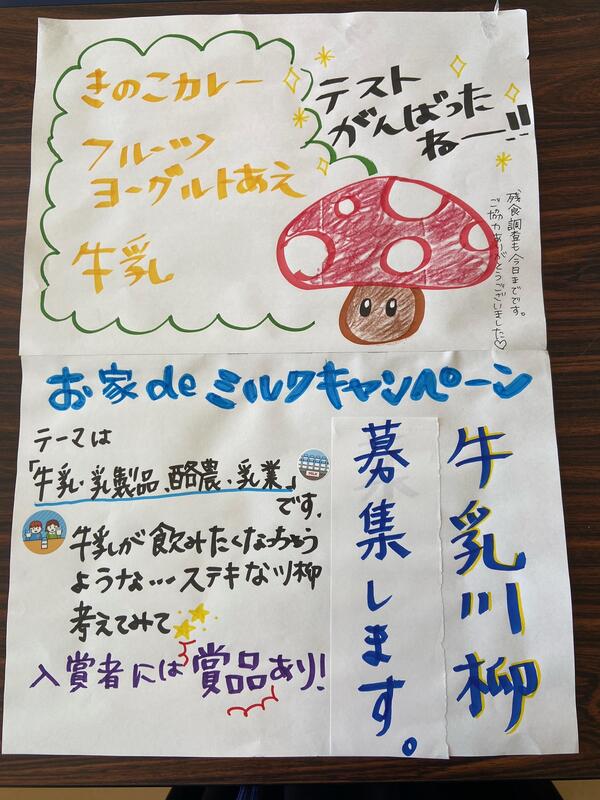 きのこカレー
フルーツ
ヨーグルトあえ
牛乳
テスト
がんばった
ねー!!
残食調査も今日までです。
ご協力ありがとうございました♡
お家deミルクキャンペーン
テーマは
「牛乳・乳製品、酪農・乳業」
です。
牛乳が飲みたくなっちゃう
ような…ステキな川柳
考えてみて
入賞者には賞品あり!
牛乳川柳
募集します。